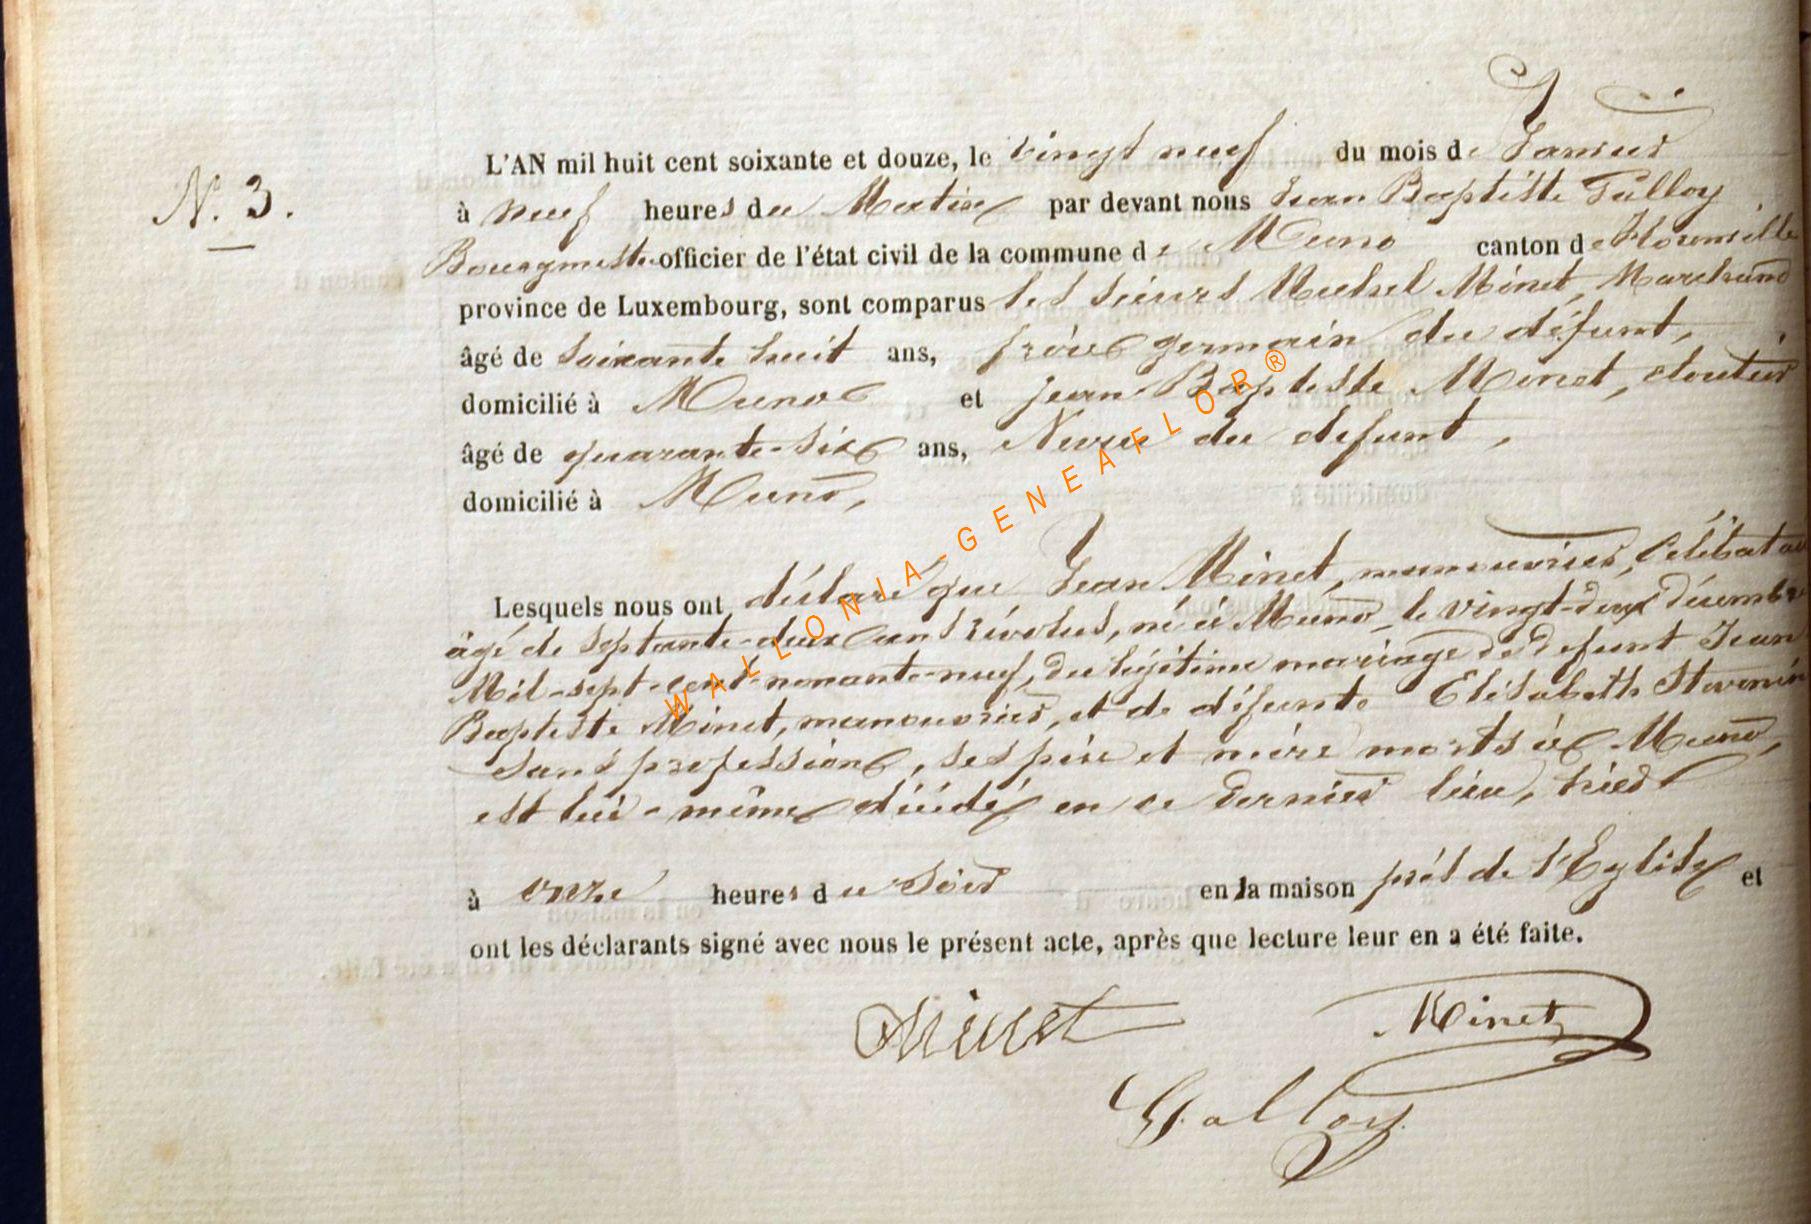 N°. 3.
L'AN mil huit cent soixante et douze, le vingt neuf du mois de Janvier
à neuf heures du Matin par devant nous Jean Baptiste Galloy
Bourgmestre officier de l'état civil de la commune de Muno canton de Florenville
province de Luxembourg, sont comparus les sieurs Michel Minet, Marchand
âgé de soixante huit ans, frère germain du défunt,
domicilié à Muno et Jean Baptiste Minet, cloutier
âgé de quarante-six ans, Neveu du defunt,
domicilié à Muno,
Lesquels nous ont déclaré que Jean Minet, manouvrier, Célibataire
âgé de septante-deux ans révolus, né à Muno, le vingt-deux décembre
Mil-sept-cent-nonante-neuf, du légitime mariage de defunt Jean
Baptiste Minet, manouvrier, et de défunte Elisabeth Stevenin
sans profession, ses père et mère morts à Muno,
est lui-même décédé en ce dernier lieu, hier
à onze heures du soir en la maison près de l'Eglise et
ont les déclarants signé avec nous le présent acte, après que lecture leur en a été faite.
Minet Minet
Galloy
WALLONIA-GENEAFLOR®